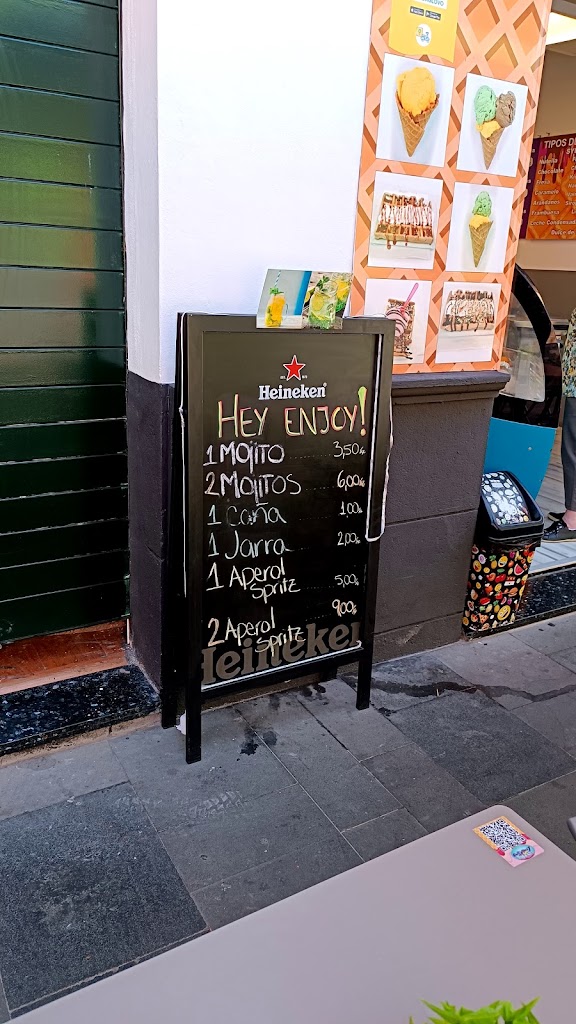 TIPOS DE
Nutella
Chocolate
Fresa
Caramelo
Arándanos
Frambuesa
Leche Condensada
Dulce de
Heineken
HEY ENJOY!
1 MOJITO 3,50€
2 MOJITOS 6,00€
1 Caña 1,00€
1 Jarra 2,00€
1 Aperol Spritz 5,00€
2 Aperol Spritz 9,00€
Heineken